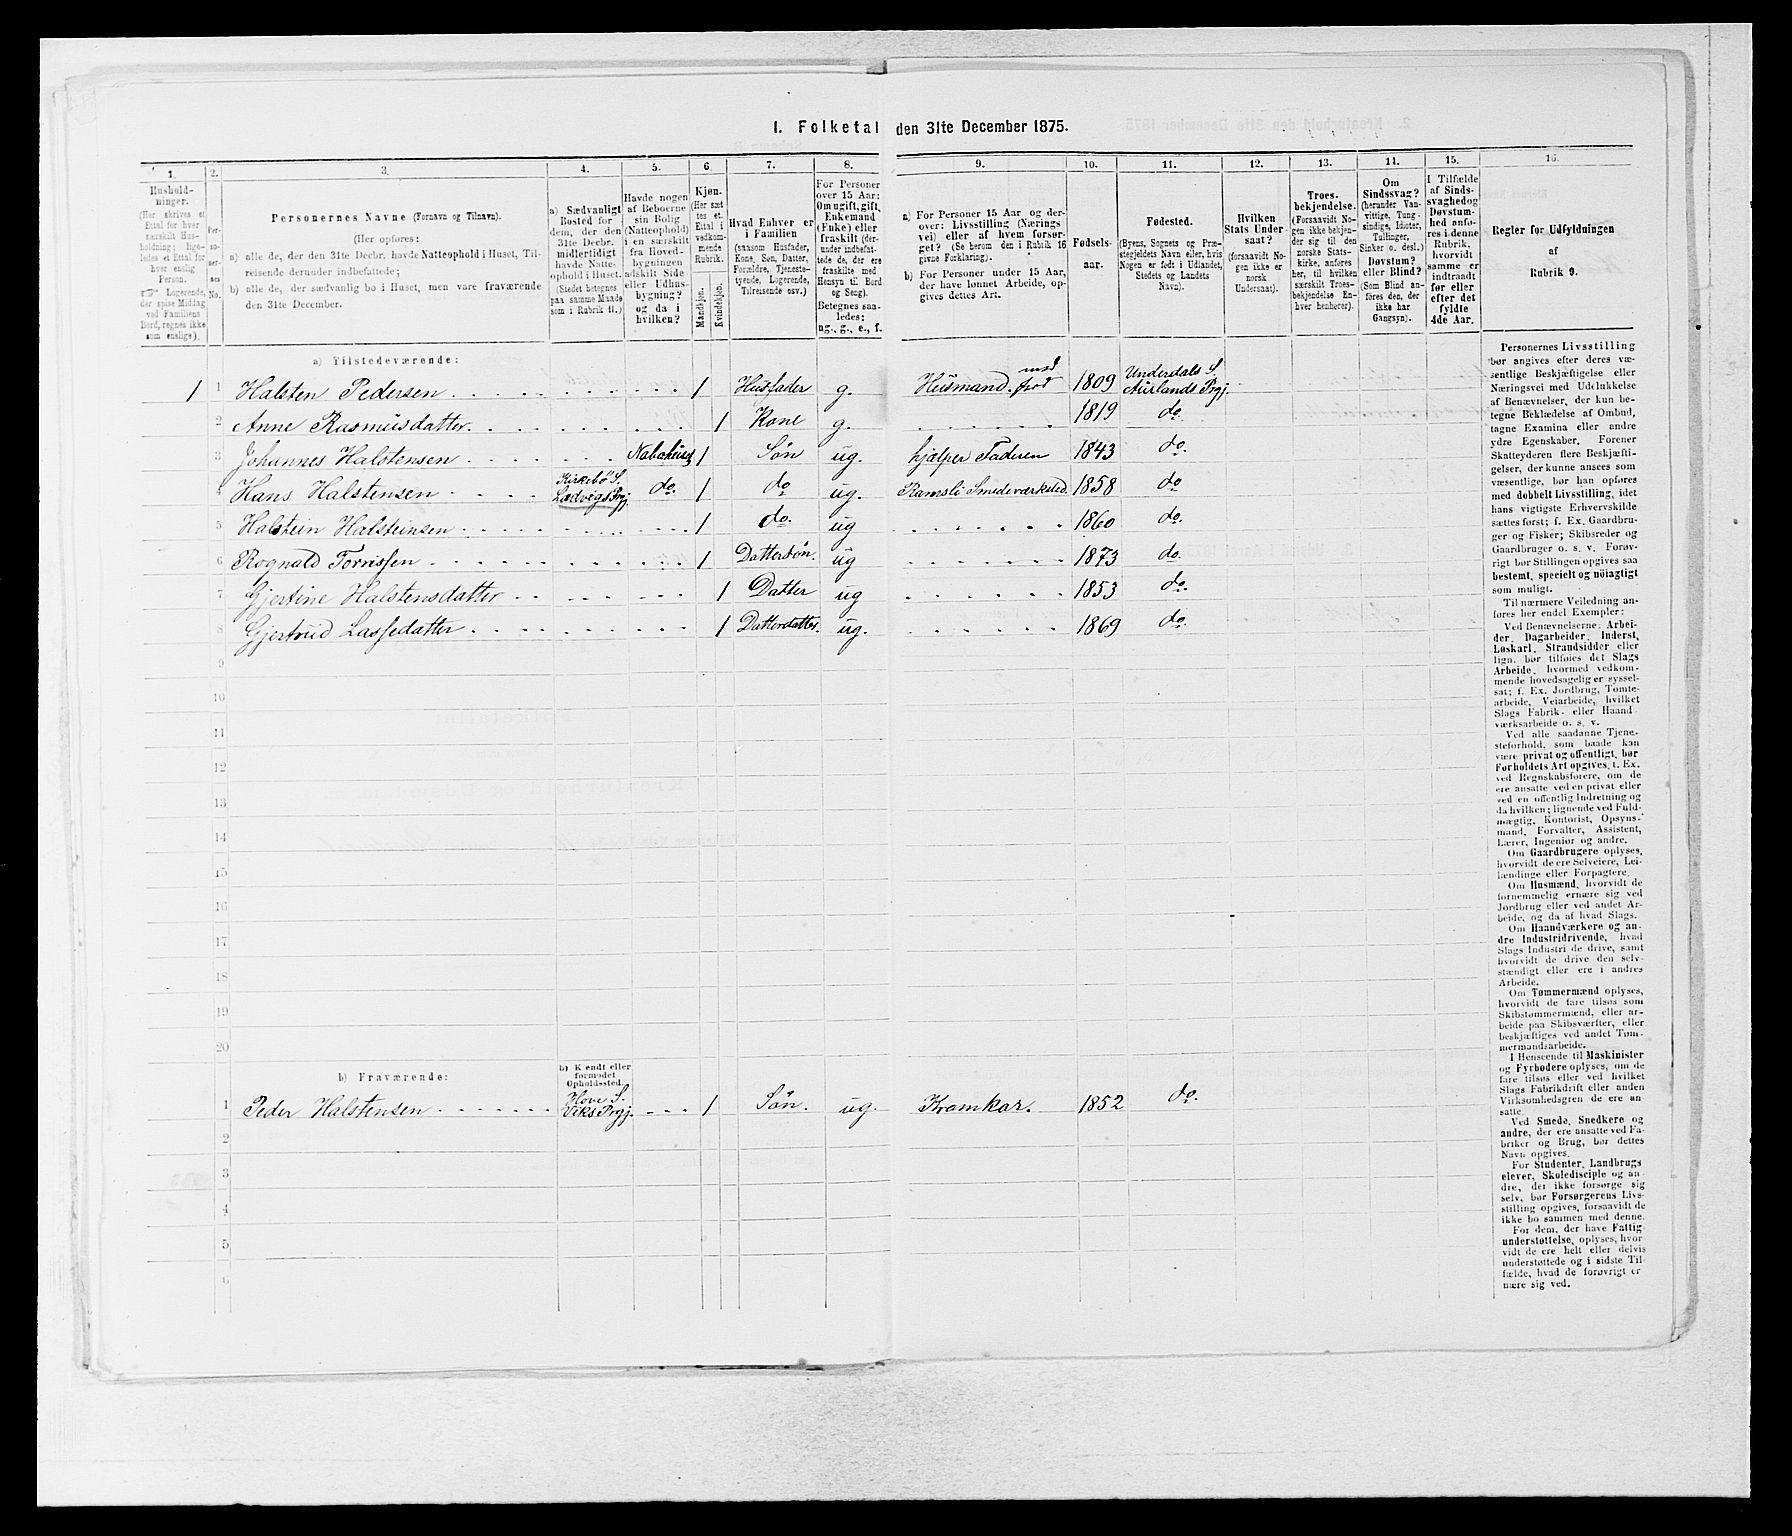 1. Folketal den 31te December 1875.
1. 2. 3. 4. 5. 6. 7. 8. 9. 10. 11. 12. 13. 14. 15. 16.
Hushold-
ninger.
(Her skrives et
Ettal for hver
særskilt Hus-
holdning; lige-
ledes et Ettal for
hver enslig
Person.
☞ Logerende,
der spise Middag
ved Familiens
Bord, regnes ikke
som enslige).
Per-
so-
ner-
nes
No.
Personernes Navne (Fornavn og Tilnavn).
(Her opføres:
a) alle de, der den 31te Decbr. havde Natteophold i Huset, Til-
reisende derunder indbefattede;
b) alle de, der sædvanlig bo i Huset, men vare fraværende
den 31te December.
a) Sædvanligt
Bosted for
dem, der den
31te Decbr.
midlertidigt
havde Natte-
ophold i Huset.
(Stedet betegnes
paa samme Maade
som i Rubrik 11.)
Havde nogen
af Beboerne
sin Bolig
(Natteophold)
i en særskilt
fra Hoved-
bygningen
adskilt Side
eller Udhus-
bygning?
og da i
hvilken?
Kjøn.
(Her sæt-
tes et
Ettal i
vedkom-
mende
Rubrik.
Mandkjøn.
Kvindekjøn.
Hvad Enhver er
i Familien
(saasom Husfader,
Kone, Søn, Datter,
Forældre, Tjeneste-
tyende, Logerende,
Tilreisende osv.)
For Personer
over 15 Aar:
Om ugift, gift,
Enkemand
(Enke) eller
fraskilt (der-
under indbefat-
tede de, der ere
fraskilte med
Hensyn til Bord
og Seng).
Betegnes saa-
ledes:
ug., g., e., f.
a) For Personer 15 Aar og der-
over: Livsstilling (Nærings
vei) eller af hvem forsør-
get? (Se herom den i Rubrik 16
givne Forklaring).
b) For Personer under 15 Aar,
der have lønnet Arbeide, op-
gives dettes Art.
Fødsels-
aar.
Fødested.
(Byens, Sognets og Præ-
stegjeldets Navn eller, hvis
Nogen er født i Udlandet,
Stedets og Landets
Navn).
Hvilken
Stats Under-
saat?
(forsaavidt No-
gen ikke er
norsk
Undersaat).
Troes-
bekjendelse.
(Forsaavidt No-
gen ikke bekjen-
der sig til den
norske Stats-
kirke, anføres
her, til hvilken
særskilt Troes-
bekjendelse En-
hver henhører).
Om
Sindssvag?
(herunder Van-
vittige, Tung-
sindige, Idioter,
Tullinger,
Sinker o. desl.)
Døvstum?
eller Blind?
(Som Blind an-
føres den, der
ikke har
Gangsyn).
I Tilfælde
af Sinds-
svaghed og
Døvstum-
hed anfø-
res i denne
Rubrik,
hvorvidt
samme er
indtraadt
før eller
efter det
fyldte
4de Aar.
Regler for Udfyldningen
af
Rubrik 9.
a) Tilstedeværende:
1 1 Halsten Pedersen 1 Husfader g. Husmand med Jord 1809 Underdals S. Aurlands Prgj.
2 Anne Rasmusdatter 1 Kone g. 1819 do.
3 Johannes Halstensen Nabohuset 1 Søn ug. hjælper Faderen 1843 do.
4 Hans Halstensen Kirkebö S. Ladvigs Prgj. do. 1 do ug. Ramsli Smedeværksted. 1858 do
5 Halstein Halsteinsen 1 do. ug 1860 do.
6 Rognald Torrissen 1 Dattersön. ug 1873 do.
7 Gjertine Halstensdatter 1 Datter ug 1853 do.
8 Gjertrud Lassedatter 1 Datterdatter. ug. 1869 do.
9
10
11
12
13
14
15
16
17
18
19
20
b) Fraværende:
b) Kjendt eller
formodet
Opholdssted.
1 Peder Halstensen Hove S. Viks Prgj. 1 Søn. ug. Kramkar. 1852 do.
2
3
4
5
6
Personernes Livsstilling
bør angives efter deres væ-
sentlige Beskjæftigelse eller
Næringsvei med Udelukkelse
af Benævnelser, der kun be-
tegne Beklædelse af Ombud,
tagne Examina eller andre
ydre Egenskaber. Forener
Skatteyderen flere Beskjæfti-
gelser, der kunne ansees som
væsentlige, bør han opføres
med dobbelt Livsstilling, idet
hans vigtigste Erhvervskilde
sættes først; f. Ex. Gaardbru-
ger og Fisker; Skibsreder og
Gaardbruger o. s. v. Forøv-
rigt bør Stillingen opgives saa
bestemt, specielt og nöiagtigt
som muligt.
Til nærmere Veiledning an-
føres her endel Exempler:
Ved Benævnelserne: Arbei-
der, Dagarbeider, Inderst,
Løskarl, Strandsidder eller
lign. bør tilføies det Slags
Arbeide, hvormed vedkom-
mende hovedsagelig er syssel-
sat; f. Ex. Jordbrug, Tomte-
arbeide, Veiarbeide, hvilket
Slags Fabrik- eller Haand-
værksarbeide o. s. v.
Ved alle saadanne Tjene-
steforhold, som baade kan
være privat og offentligt, bør
Forholdets Art opgives, t. Ex.
ved Regnskabsførere, om de
ere ansatte ved en privat eller
ved en offentlig Indretning og
da hvilken; lignende ved Fuld-
mægtig, Kontorist, Opsyns-
mand, Forvalter, Assistent,
Lærer, Ingeniør og andre.
Om Gaardbrugere oplyses,
hvorvidt de ere Selveiere, Lei-
lændinge eller Forpagtere.
Om Husmænd, hvorvidt de
fornemmelig ernære sig ved
Jordbrug eller ved andet Ar-
beide, og da af hvad Slags.
Om Haandværkere og an-
dre Industridrivende, hvad
Slags Industri de drive, samt
hvorvidt de drive den selv-
stændigt eller ere i andres
Arbeide.
Om Tømmermænd oplyses,
hvorvidt de fare tilsøs som
Skibstømmermænd, eller ar-
beide paa Skibsværfter, eller
beskjæftiges ved andet Tøm-
mermandsarbeide.
I Henseende til Maskinister
og Fyrbødere oplyses, om de
fare tilsøs eller ved hvilket
Slags Fabrikdrift eller anden
Virksomhedsgren de ere an-
satte.
Ved Smede, Snedkere og
andre, der ere ansatte ved Fa-
briker og Brug, bør dettes
Navn opgives.
For Studenter, Landbrugs
elever, Skoledisciple og an-
dre, der ikke forsørge sig
selv, bør Forsørgerens Livs-
stilling opgives, forsaavidt de
ikke bo sammen med denne.
For dem, der have Fattig-
understøttelse, oplyses, hvor-
vidt de ere helt eller delvis
understøttede og i sidste Til-
fælde, hvad de forøvrigt er
nære sig ved.